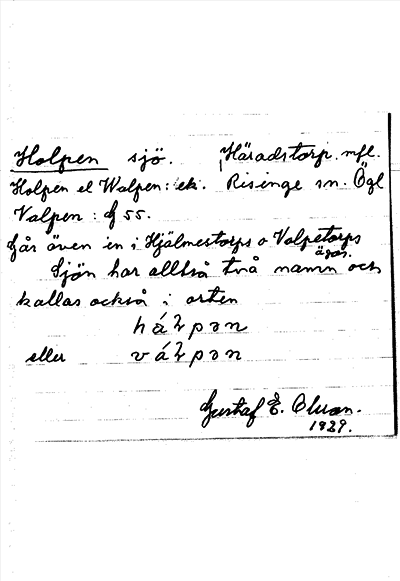 Holpen sjö. Häradstorp. mfl.
Holpen el Walpen: ek. Risinge sn. Ögl
Valpen: G 55.
Går även in i Hjälmestorps o Valpetorps
ägor.
Sjön har alltså två namn och
kallas också i orten
hálpən
eller válpən
Gustaf E. Olsson.
1929.